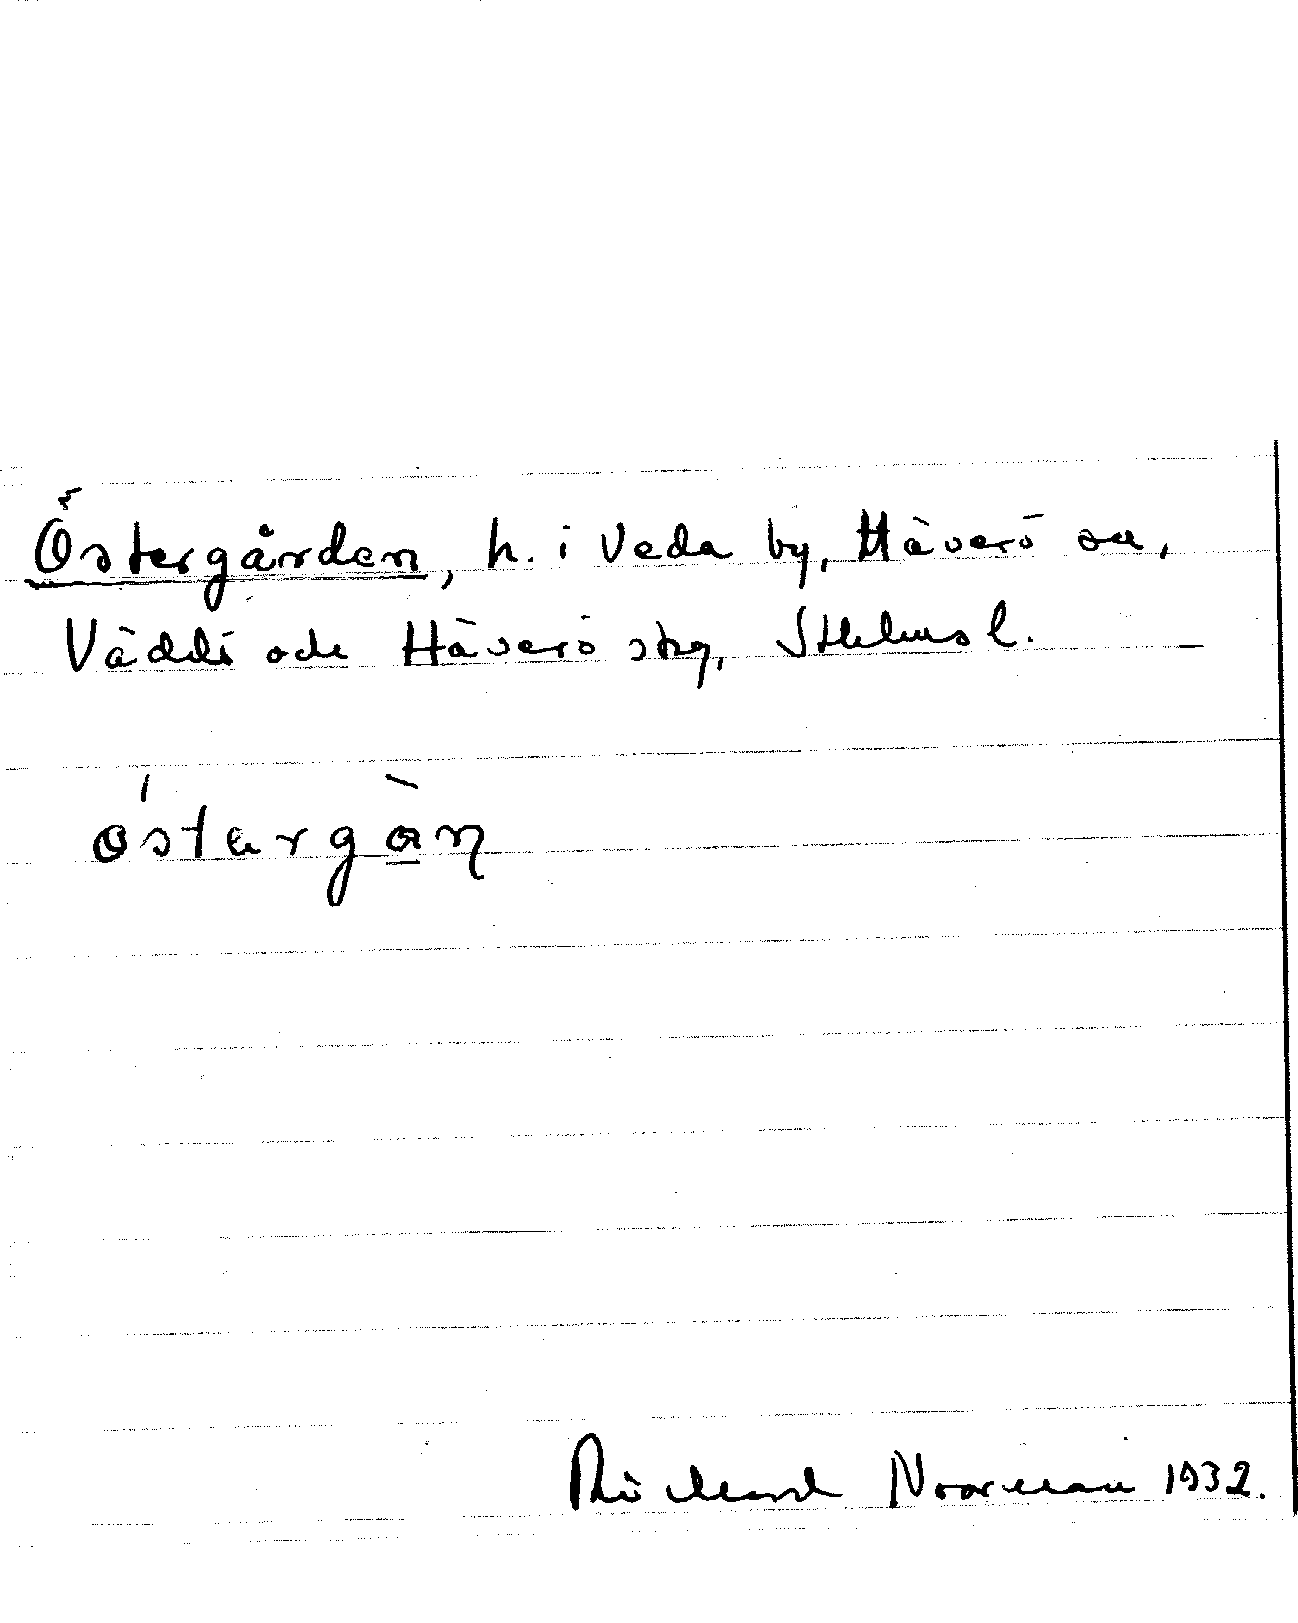 Östergården, h. i Veda by, Häverö sn,
Väddö och Häverö skg, Sthlms l.
östərgàn̥
Rickard Noorman 1932.